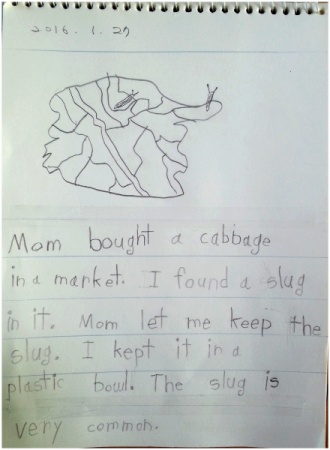 2016. 1. 27
Mom bought a cabbage
in a market. I found a slug
in it. Mom let me keep the
slug. I kept it in a
plastic bowl. The slug is
very common.